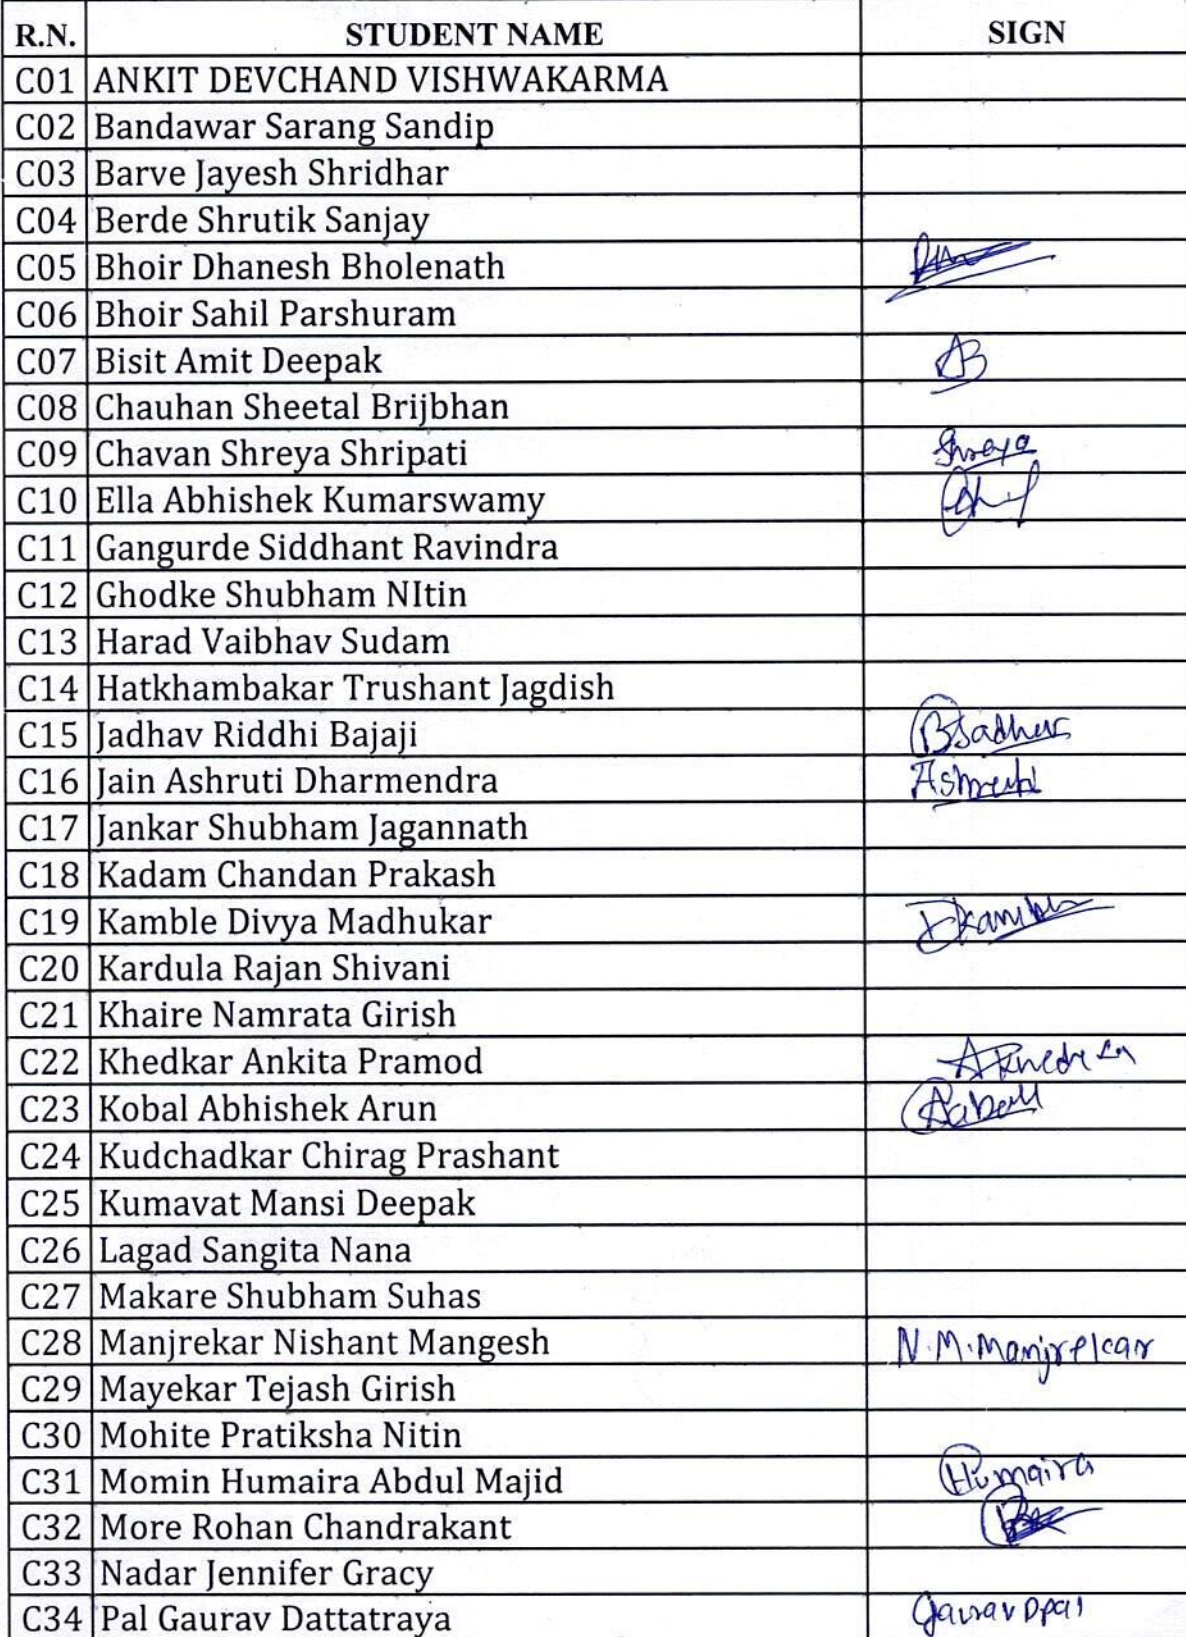 R.N. STUDENT NAME SIGN
C01 ANKIT DEVCHAND VISHWAKARMA
C02 Bandawar Sarang Sandip
C03 Barve Jayesh Shridhar
C04 Berde Shrutik Sanjay
C05 Bhoir Dhanesh Bholenath
C06 Bhoir Sahil Parshuram
C07 Bisit Amit Deepak AB
C08 Chauhan Sheetal Brijbhan
C09 Chavan Shreya Shripati Shreya
C10 Ella Abhishek Kumarswamy
C11 Gangurde Siddhant Ravindra
C12 Ghodke Shubham NItin
C13 Harad Vaibhav Sudam
C14 Hatkhambakar Trushant Jagdish
C15 Jadhav Riddhi Bajaji
C16 Jain Ashruti Dharmendra Ashruti
C17 Jankar Shubham Jagannath
C18 Kadam Chandan Prakash
C19 Kamble Divya Madhukar
C20 Kardula Rajan Shivani
C21 Khaire Namrata Girish
C22 Khedkar Ankita Pramod
C23 Kobal Abhishek Arun
C24 Kudchadkar Chirag Prashant
C25 Kumavat Mansi Deepak
C26 Lagad Sangita Nana
C27 Makare Shubham Suhas
C28 Manjrekar Nishant Mangesh N.M.Manjrekar
C29 Mayekar Tejash Girish
C30 Mohite Pratiksha Nitin
C31 Momin Humaira Abdul Majid Humaira
C32 More Rohan Chandrakant
C33 Nadar Jennifer Gracy
C34 Pal Gaurav Dattatraya Gaurav Dpal